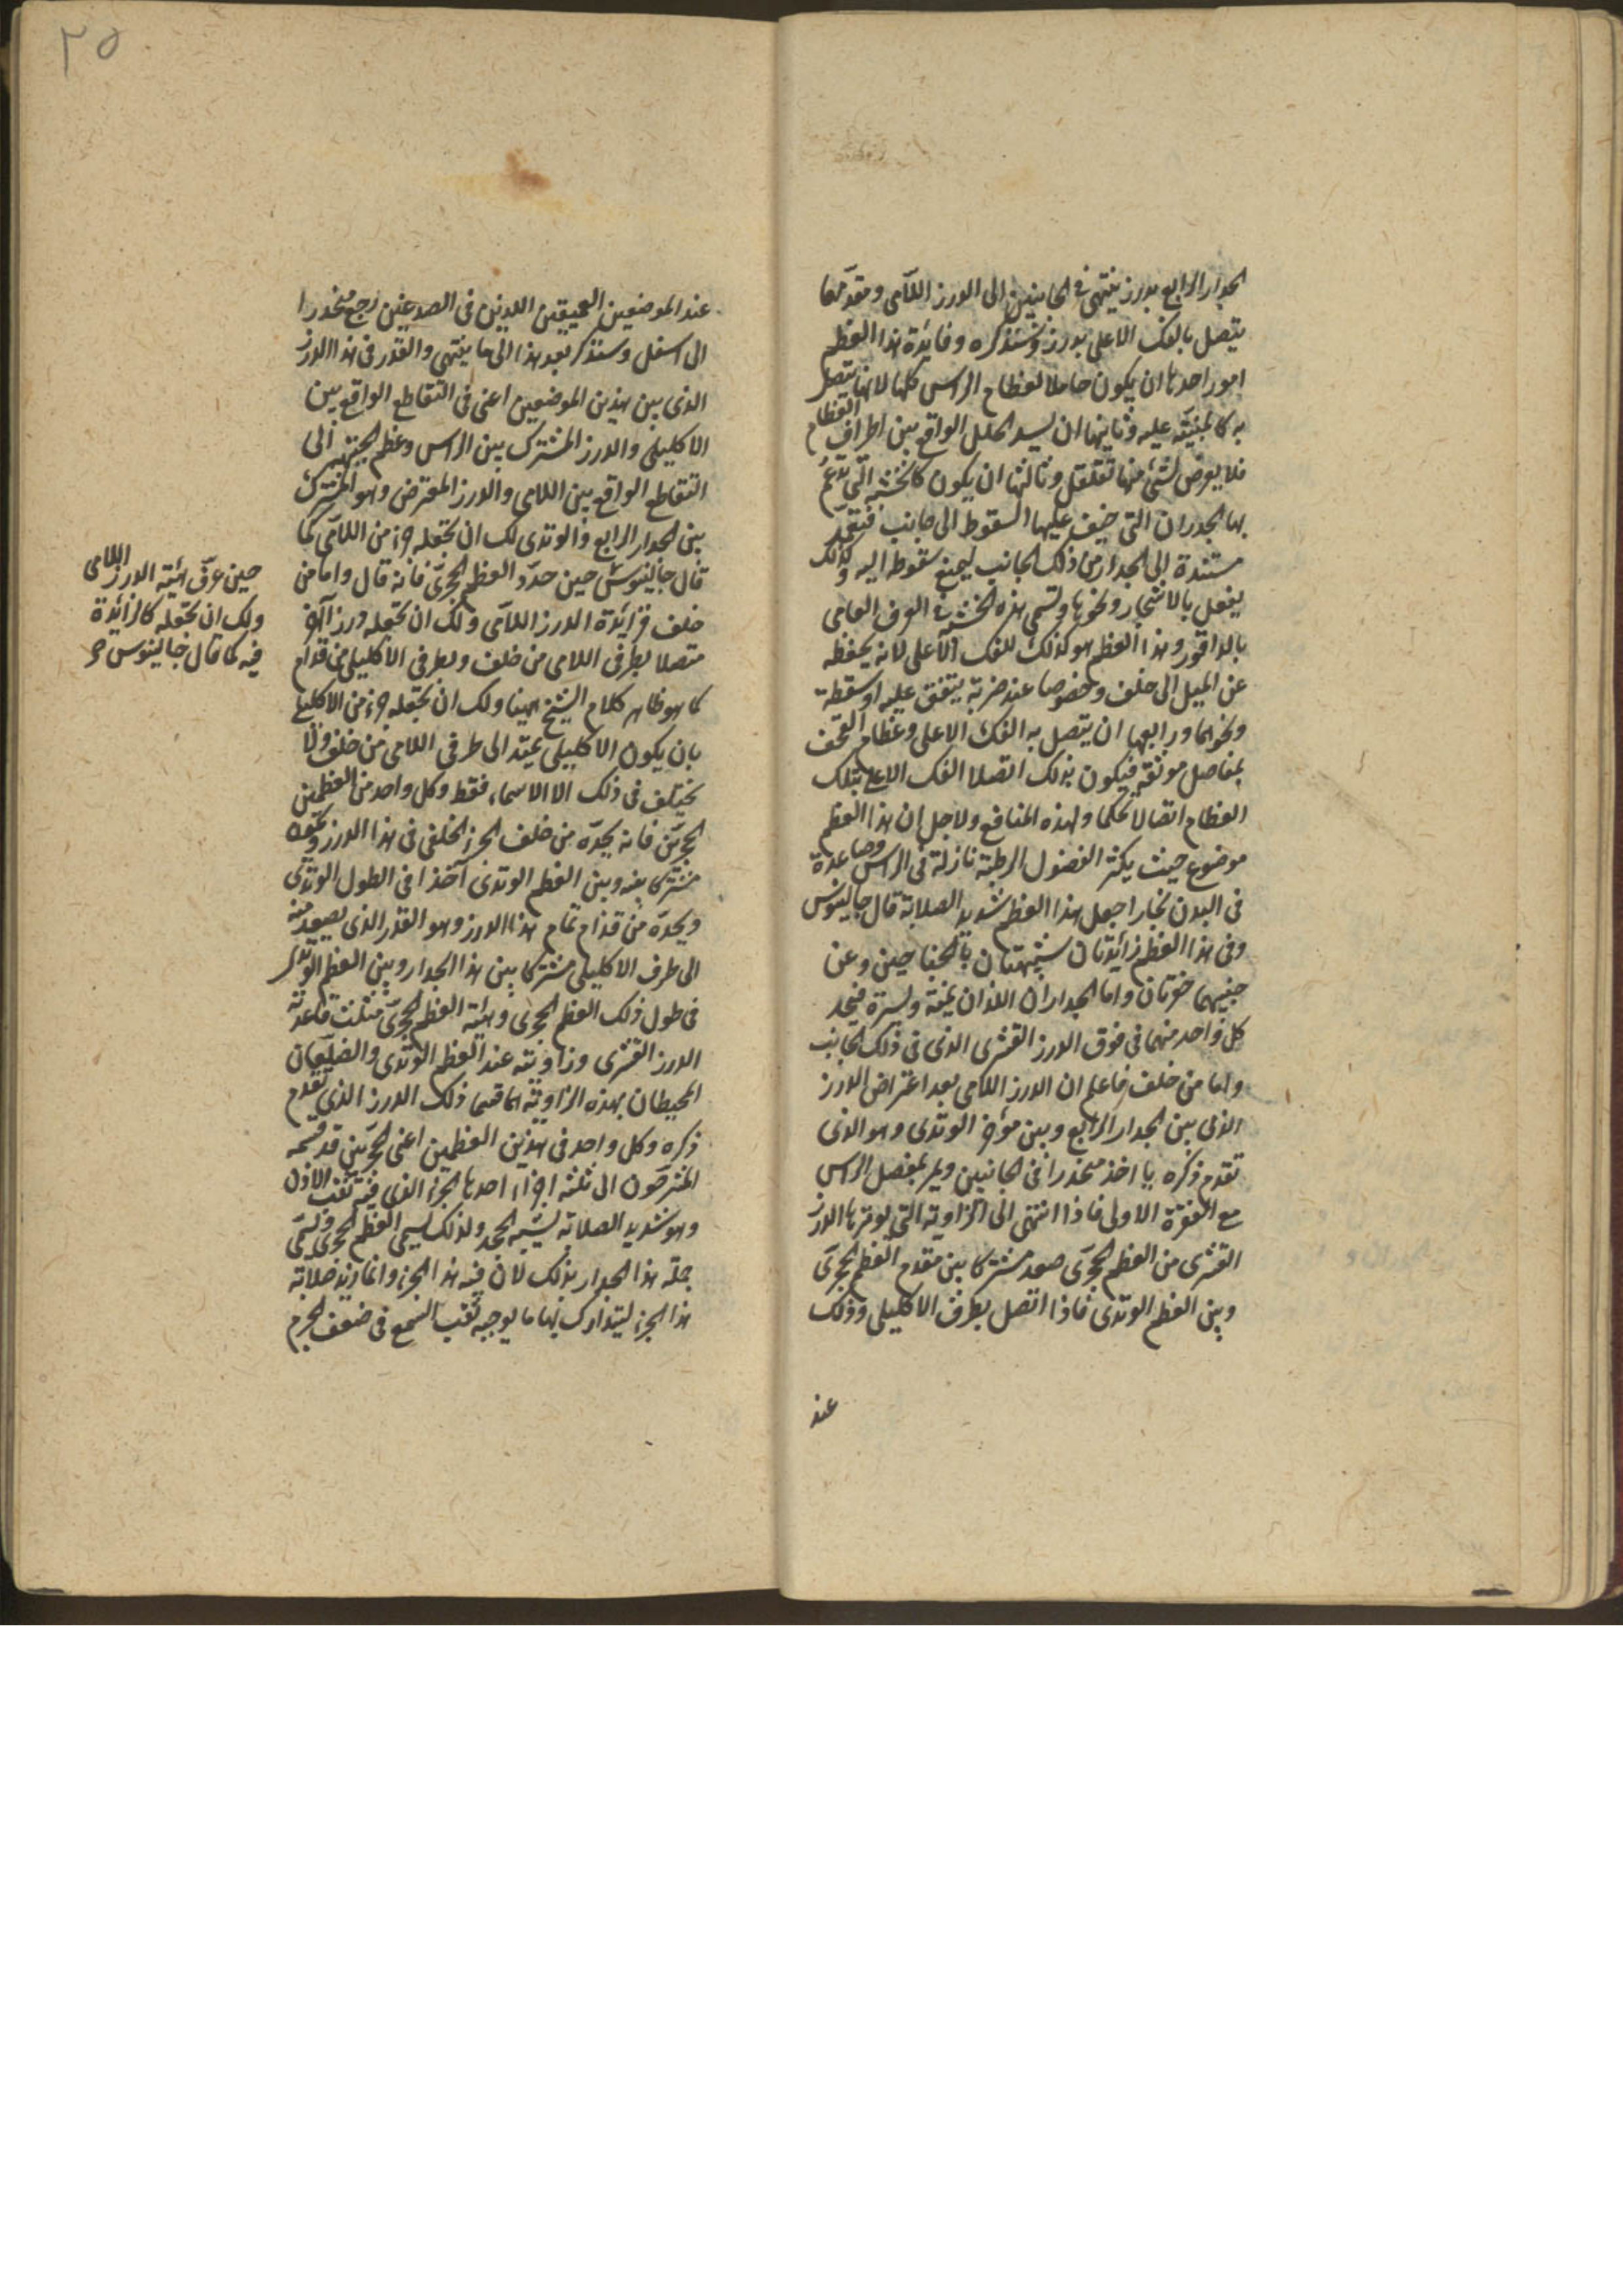 الجدار الرابع بدرز ينتهى فى الجانبين الى الدرز اللامى ومقدمها
يتصل بالفك الاعلى بدرز وسنذكره وفائدة هذا العظم
امور احدها ان يكون حاملا لعظام الراس كلها لانها يتصل
به كالمبنية عليه وثانيها ان يسد الخلل الواقع بين اطراف العظام
فلا يعرض لشئ منها تقلقل وثالثها ان يكون كالخشبة التى تدعم
بها الجدران التى خيف عليها السقوط الى جانب فيقعد
مستندة الى الجدار من ذلك الجانب ليمنع سقوطه اليه وكذلك
يفعل بالاشجار ونحوها وتسمى هذه الخشبة فى العرف العامى
بالداقور وهذا العظم هو كذلك للفك الاعلى لانه يحفظه
عن الميل الى خلف وخصوصا عند ضربة يتفق عليه او سقطة
ونحوهما ورابعها ان يتصل به الفك الاعلى وعظام القحف
بمفاصل موثقة فيكون بذلك اتصال الفك الاعلى بتلك
العظام اتصالا محكما ولهذه المنافع ولاجل ان هذا العظم
موضوع حيث يكثر الفضول الرطبة نازلة فى الراس وصاعدة
فى البدن بخارا جعل هذا العظم شديد الصلابة قال جالينوس
وفى هذا العظم زائدتان شبيهتان بالجناحين وعن
جنبيهما حفرتان واما الجداران اللذان يمنة ويسرة فيحد
كل واحد منهما فى فوق الدرز القشرى الذى فى ذلك الجانب
واما من خلف فاعلم ان الدرز اللامى بعد اعتراض الدرز
الذى بين الجدار الرابع وبين مؤخر الوتدى وهو الذى
تقدم ذكره ياخذ منحدرا فى الجانبين ويمر بمفصل الراس
مع الفقرة الاولى فاذا انتهى الى الزاوية التى يوترها الدرز
القشرى من العظم الحجرى صعد مشتركا بين مقدم العظم الحجرى
وبين العظم الوتدى فاذا اتصل بطرف الاكليلى وذلك
عند
٢٥
عند الموضعين العميقين اللذين فى الصدغين رجع منحدرا
الى اسفل وسنذكر بعد هذا الى ما ينتهى والقدر فى هذا الدرز
الذى بين هذين الموضعين اعنى فى التقاطع الواقع بين
الاكليلى والدرز المشترك بين الراس وعظم الجبهة الى
التقاطع الواقع بين اللامى والدرز المعترض وهو المشترك
بين الجدار الرابع والوتدى لك ان تجعله جزء من اللامى كما
قال جالينوس حين حدد العظم الحجرى فانه قال واما من
خلف فزائدة الدرز اللامى ولك ان تجعله درزا آخر
متصلا بطرفى اللامى من خلف وبطرفى الاكليلى من قدام
كما هو ظاهر كلام الشيخ ههنا ولك ان تجعله جزء من الاكليلى
بان يكون الاكليلى يمتد الى طرفى اللامى من خلف ولا
يختلف فى ذلك الا الاسماء فقط وكل واحد من العظمين
الحجريين فانه يحده من خلف الجزء الخلفى فى هذا الدرز ويكون
مشتركا بينه وبين العظم الوتدى آخذا فى الطول الوتدى
ويحده من قدام تمام هذا الدرز وهو القدر الذى يصعد منه
الى طرف الاكليلى مشتركا بين هذا الجدار وبين العظم الوتدى
فى طول ذلك العظم الحجرى وهيئة العظم الحجرى مثلث قاعدته
الدرز القشرى وزاويته عند العظم الوتدى والضلعان
المحيطان بهذه الزاوية هما قسمى ذلك الدرز الذى تقدم
ذكره وكل واحد فى هذين العظمين اعنى الحجريين قد قسمه
المشرحون الى ثلثة اجزاء احدها الجزء الذى فيه ثقب الاذن
وهو شديد الصلابة يشبه الحجر ولذلك يسمى العظم الحجرى ويسمى
جملة هذا الجدار بذلك لان فيه هذا الجزء وانما زيد صلابة
هذا الجزء ليتدارك بها ما يوجبه ثقب السمع فى ضعف الجرم
حين عرف هيئة الدرز اللامى
ولك ان تجعله كالزائدة
فيه كما قال جالينوس